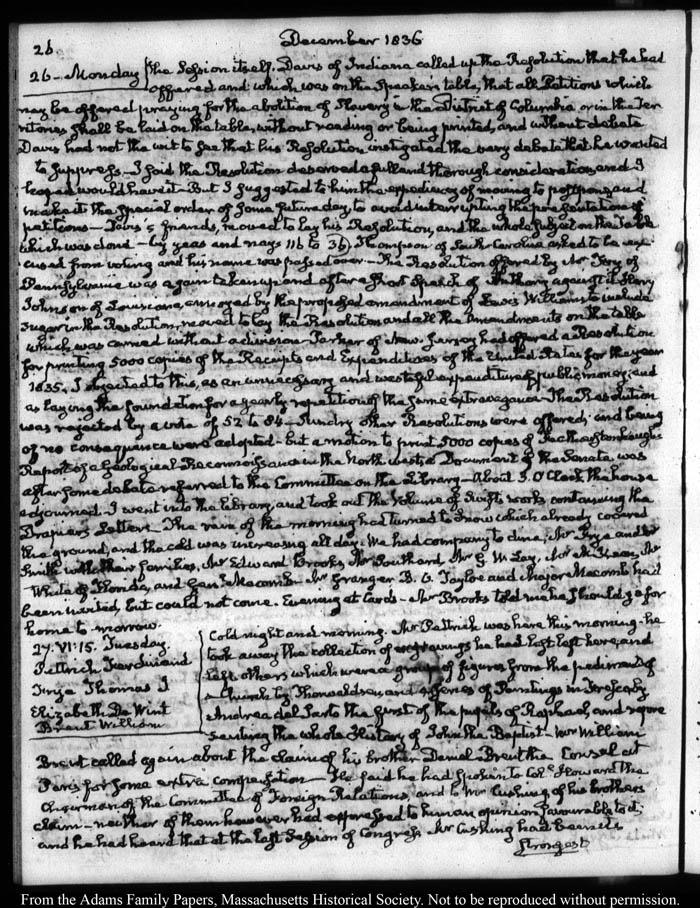 26.
December 1836
26. Monday the Session itself. Davis of Indiana called up the Resolution that he had
offered and which was on the Speaker's table, that all Petitions which
may be offered praying for the abolition of Slavery in the District of Columbia or in the Ter-
ritories shall be laid on the table, without reading or being printed, and without debate
Davis had not the wit to see that his Resolution instigated the very debate that he wanted
to suppress. I said the Resolution deserved a full and thorough consideration, and I
hoped would have it. But I suggested to him the expediency of moving to postpone, and
make it the special order of some future day, to avoid interrupting the presentation of
petitions — friends, moved to lay his Resolution, and the whole subject on the Table
which was done — by yeas and nays 116 to 36. Thompson of South Carolina asked to be ex-
cused from voting and his name was passed over — The Resolution offered by Mr Fry of
Pennsylvania was again taken up and after a short speech of Anthony against it Henry
Johnson of Louisiana, annoyed by the proposed amendment of Lewis Williams to include
sugar in the Resolution, moved to lay the Resolution and all the amendments on the table
which was carried without a division. Parker of New-Jersey had offered a Resolution
for printing 5000 copies of the Receipts and Expenditures of the United States for the year
1835. I objected to this, as an unnecessary and wasteful expenditure of public money, and
as laying the foundation for a yearly repetition of the same extravagance. The Resolution
was rejected by a vote of 52 to 84. Sundry other Resolutions were offered, and being
of no consequence were adopted — but a motion to print 5000 copies of Featherstonhaugh's
Report of a Geological Reconnoissance in the North west, a Document of the Senate was
after some debate referred to the Committee on the Library — About 3. O'Clock the house
adjourned. I went into the library, and took out the Volume of Swift's works containing the
Drapier's Letters. The rain of the morning had turned to snow which already covered
the ground, and the cold was increasing all day. We had company to dine; Mr Frye and
Smith with their families, Mr Edward Brooks, Mr Southard, Mr G. W. Lay, Mr McKean, Mr
White of Florida, and Genl Macomb. Mr Granger B. O. Tayloe and Major Macomb had
been invited, but could not come. Evening at Cards — Mr Brooks told me he should go for
home to-morrow.
27. VI:15. Tuesday
Pettrich Ferdinand
Thomas J
Elizabeth De Wint
Brent William
Cold night and morning. Mr Pettrich was here this morning — he
took away the collection of engravings he had last left here, and
left others which were a group of figures from the pediment of
a Church by Thorwaldsen, and a series of Paintings in Fresco by
Andrea del Sarto the first of the pupils of Raphael, and repre-
senting the whole History of John the Baptist — Mr William
Brent called again about the claim of his brother Daniel Brent the Consul at
Paris for some extra compensation — He said he had spoken to Coll. Howard the
Chairman of the Committee of Foreign Relations, and to Mr Cushing of his brother's
claim — neither of them however had expressed to him an opinion favourable to it,
and he had heard that at the last Session of Congress Mr Cushing had been its
strongest
From the Adams Family Papers, Massachusetts Historical Society. Not to be reproduced without permission.